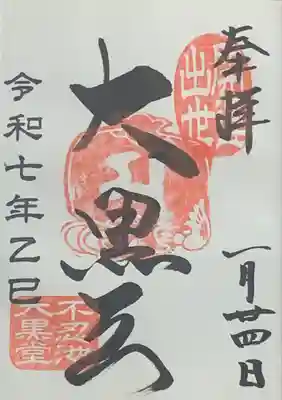 奉拝
出世
一月廿四日
大黒天
令和七年乙巳
不忍池
大黒堂